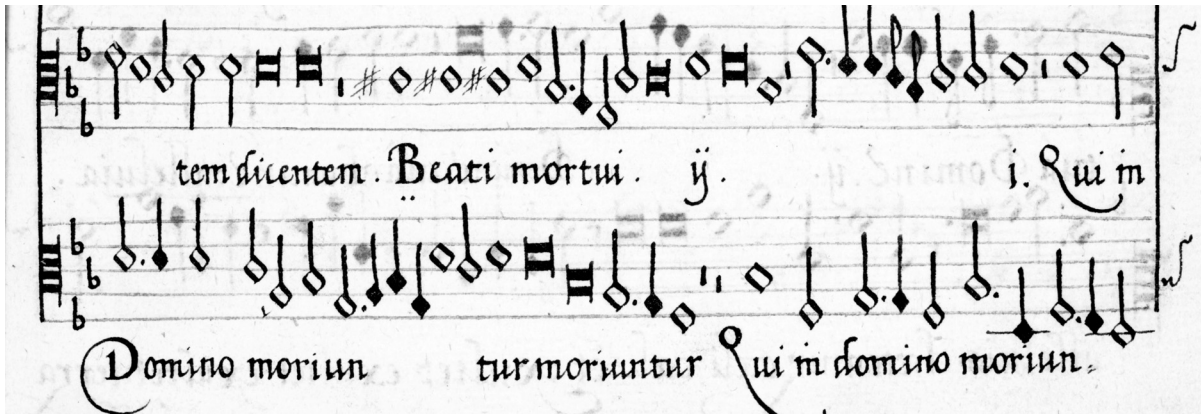 tem dicentem. Beati mortui. ij. i. Qui in
Domino moriun tur moriuntur Qui in domino moriun-